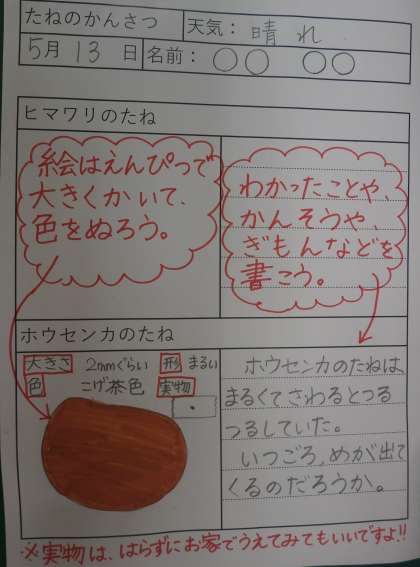 たねのかんさつ 天気： 晴れ
5月13日 名前： ○○ ○○
ヒマワリのたね
絵はえんぴつで
大きくかいて、
色をぬろう。
わかったことや、
かんそうや、
ぎもんなどを
書こう。
ホウセンカのたね
大きさ 2mmぐらい 形 まるい
色 こげ茶色 実物
ホウセンカのたねは、
まるくてさわるとつる
つるしていた。
いつごろ、めが出て
くるのだろうか。
※実物は、はらずにお家でうえてみてもいいですよ!!